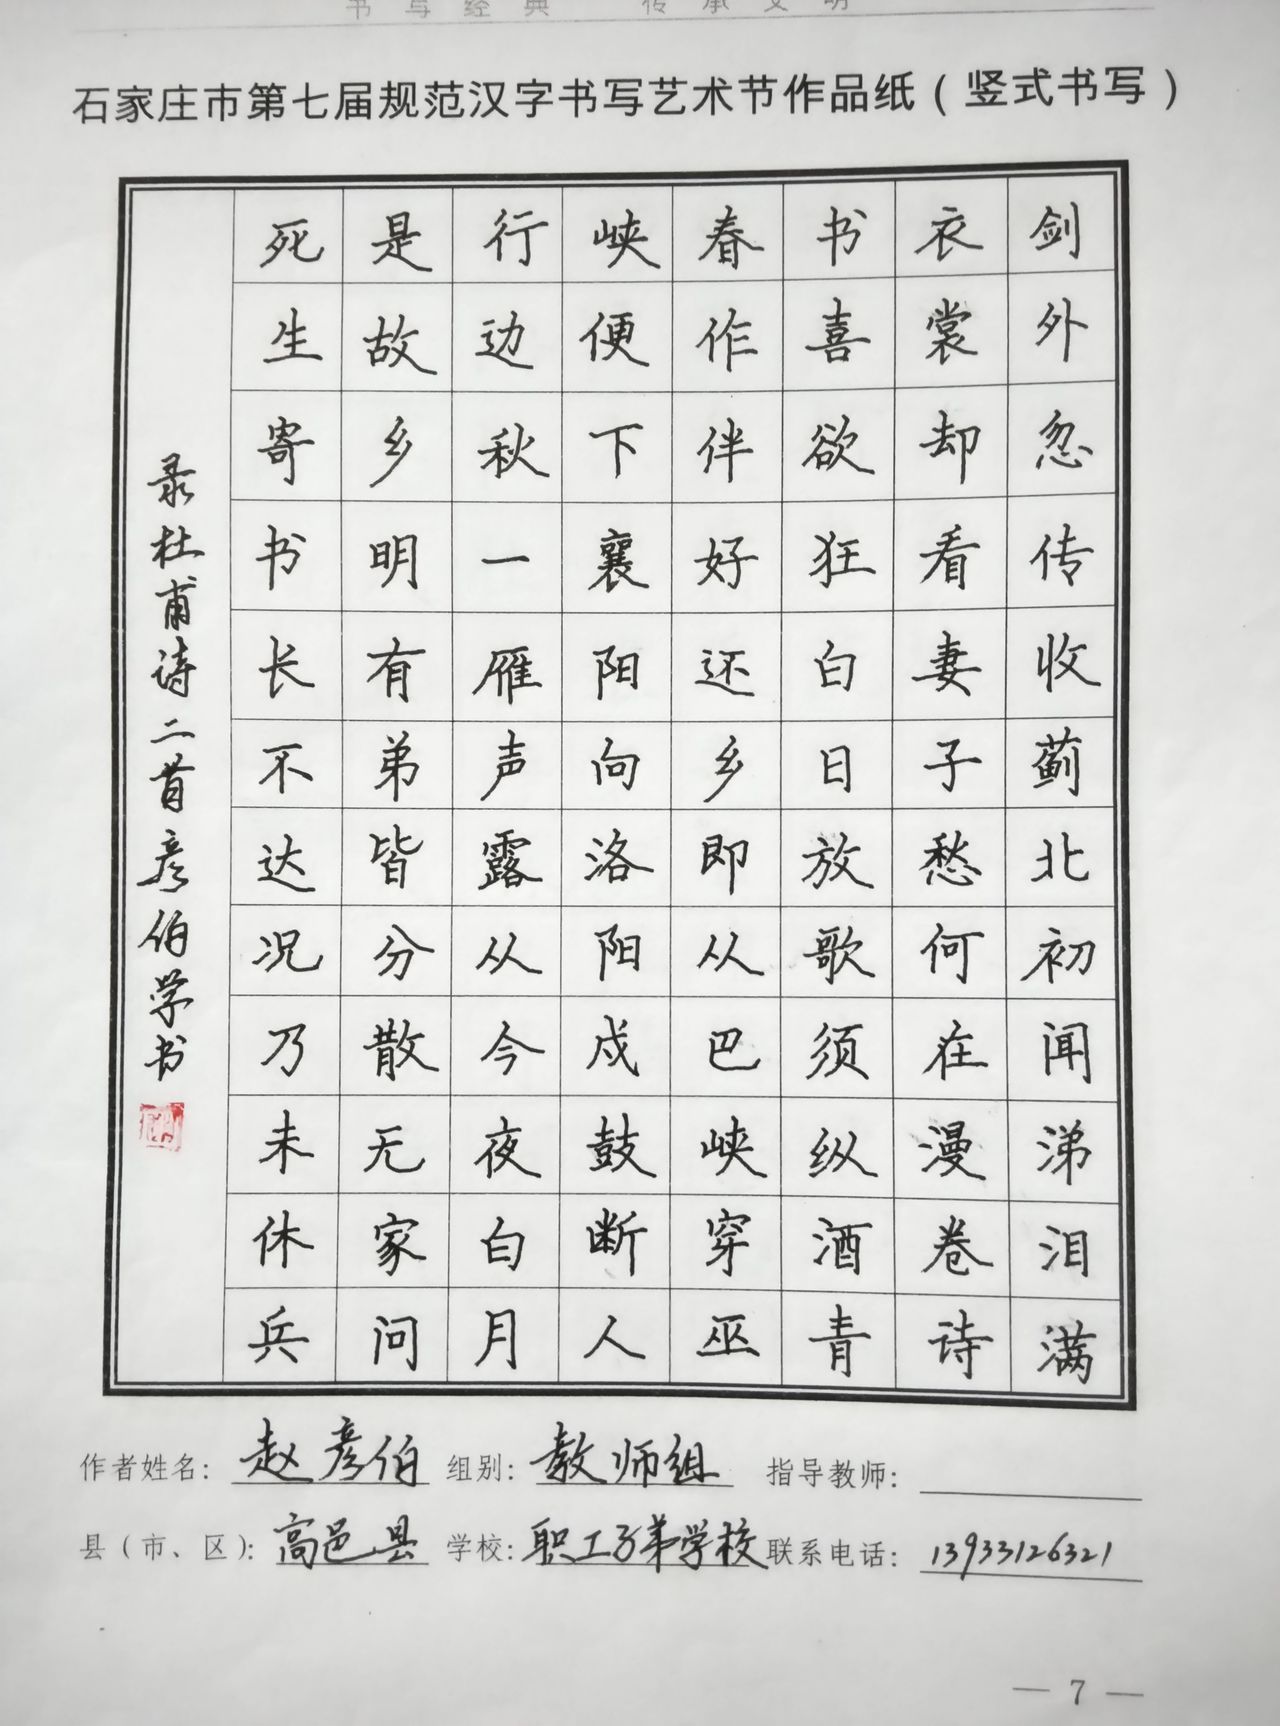 书写经典 传承文明
石家庄市第七届规范汉字书写艺术节作品纸（竖式书写）
剑外忽传收蓟北初闻涕泪满
衣裳却看妻子愁何在漫卷诗
书喜欲狂白日放歌须纵酒青
春作伴好还乡即从巴峡穿巫
峡便下襄阳向洛阳戍鼓断人
行边秋一雁声露从今夜白月
是故乡明有弟皆分散无家问
死生寄书长不达况乃未休兵
录杜甫诗二首彦伯学书
作者姓名：赵彦伯 组别：教师组 指导教师：
县（市、区）：高邑县 学校：职工子弟学校 联系电话：13933126321
— 7 —